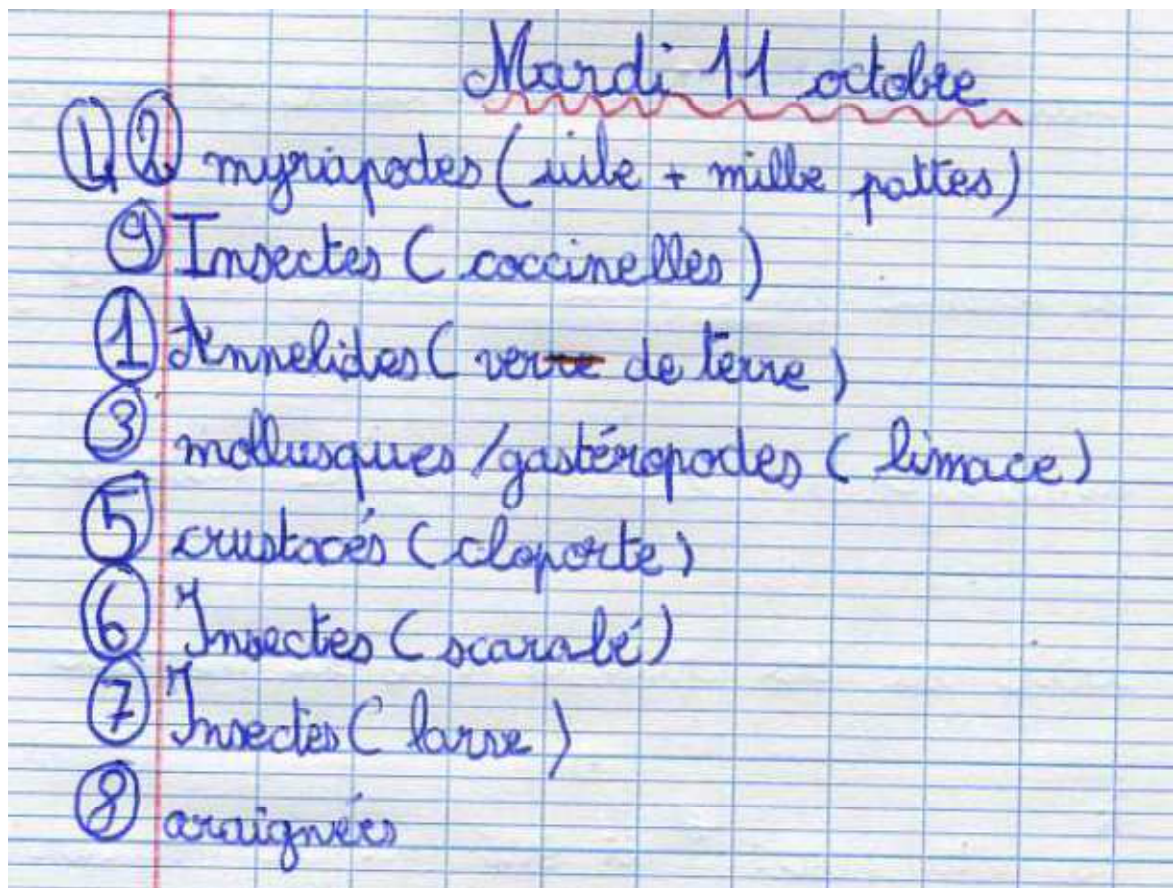 Mardi 11 octobre
④② myriapodes (iule + mille pattes)
⑨ Insectes (coccinelles)
① Annelides (verre de terre)
③ mollusques / gastéropodes (limace)
⑤ crustacés (cloporte)
⑥ Insectes (scarabé)
⑦ Insectes (larve)
⑧ araignées